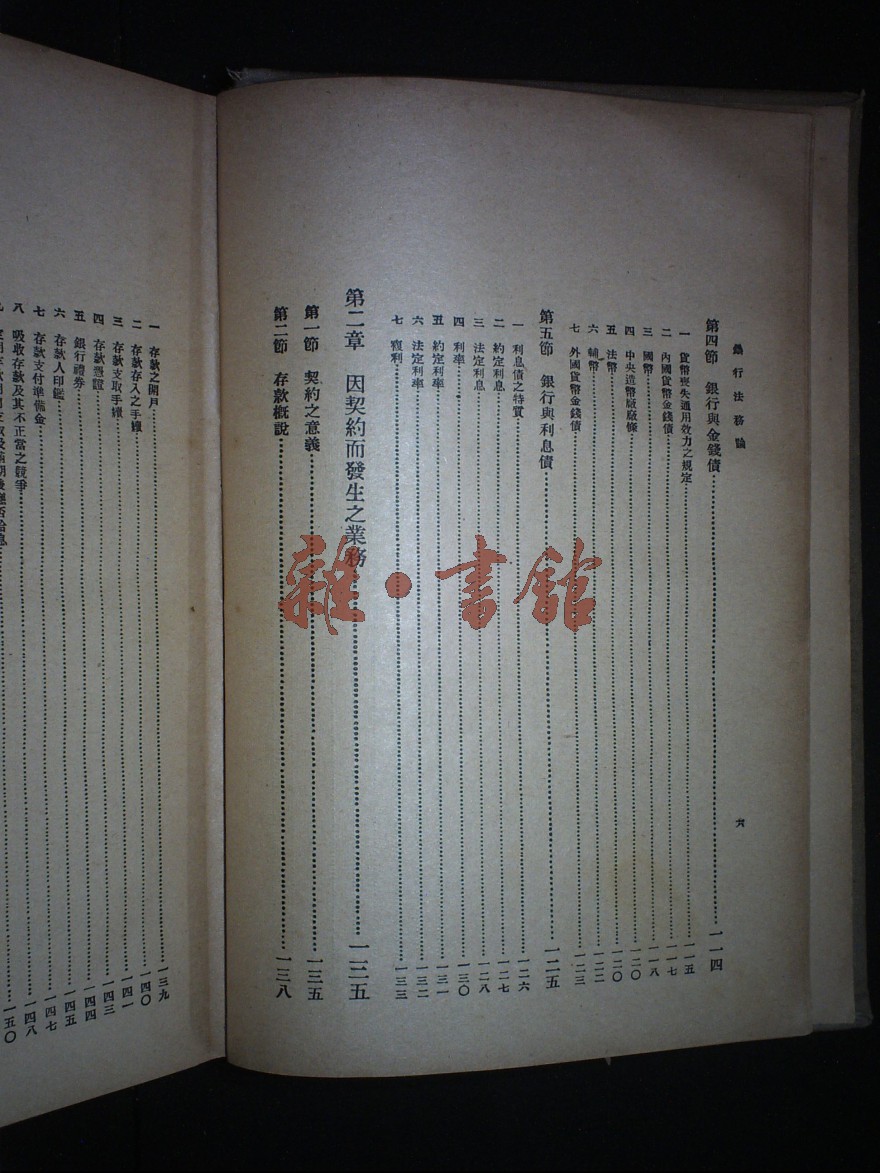 銀行法務論
六
第四節 銀行與金錢債……一一四
一 貨幣喪失通用效力之規定……一一五
二 內國貨幣金錢債……一一七
三 國幣……一一八
四 中央造幣廠廠條……一二〇
五 法幣……一二〇
六 輔幣……一二二
七 外國貨幣金錢債……一二三
第五節 銀行與利息債……一二五
一 利息債之特質……一二六
二 約定利息……一二七
三 法定利息……一二八
四 利率……一三〇
五 約定利率……一三一
六 法定利率……一三二
七 複利……一三三
第二章 因契約而發生之業務……一三五
第一節 契約之意義……一三五
第二節 存款概說……一三八
一 存款之開戶……一三九
二 存款存入之手續……一四〇
三 存款支取手續……一四一
四 存款憑證……一四三
五 銀行禮券……一四四
六 存款人印鑑……一四五
七 存款支付準備金……一四七
八 吸收存款及其不正當之競爭……一四八
一五〇
雜·書館